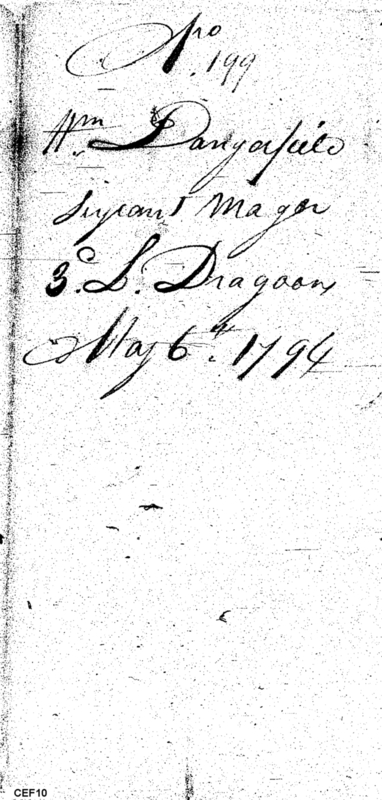 No
. 199
Wm. Dangerfield
Serjeant Major
3d. L. Dragoons
May 6th. 1794
CEF10